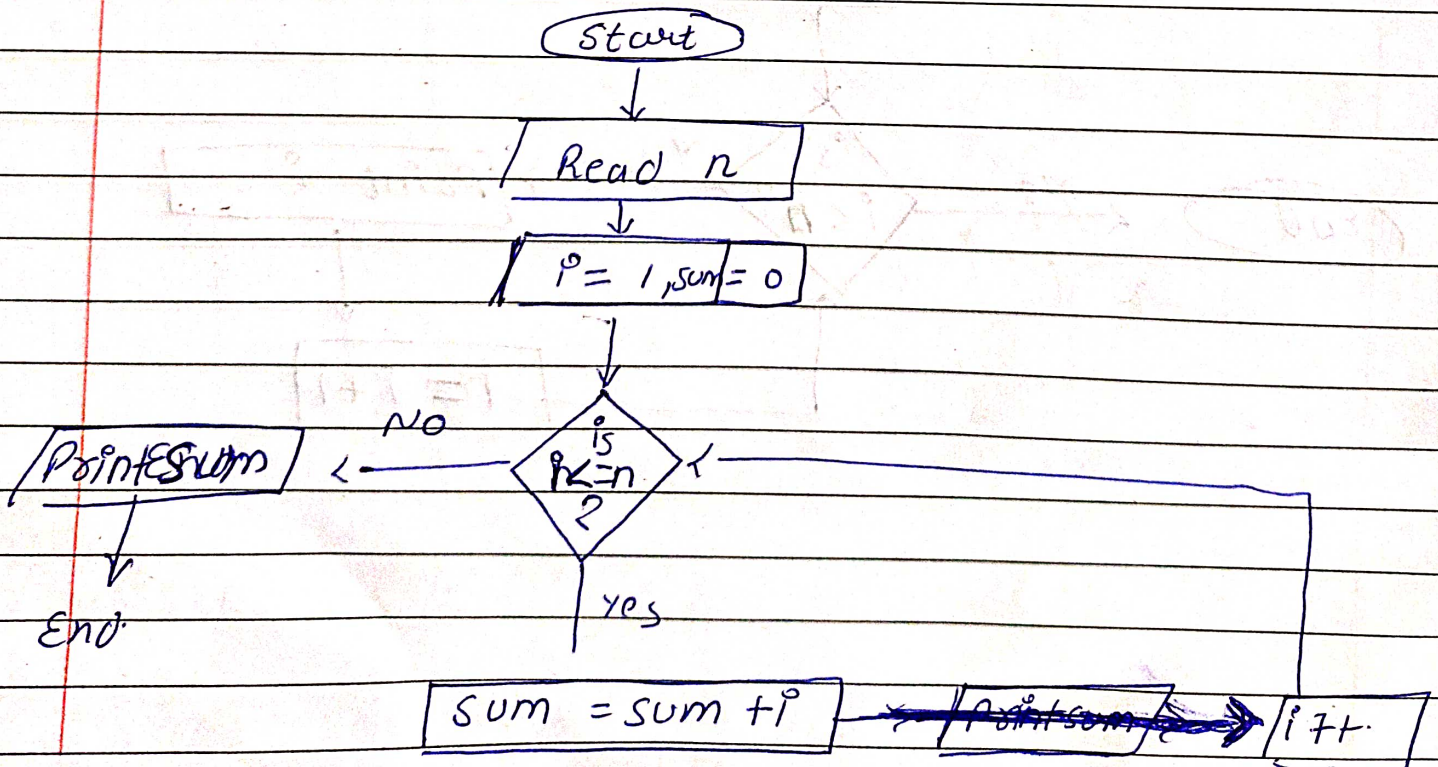 Start
Read n
i = 1, sum = 0
is
i<=n
?
NO
Print sum
End.
yes
sum = sum + i
Print sum
i++.